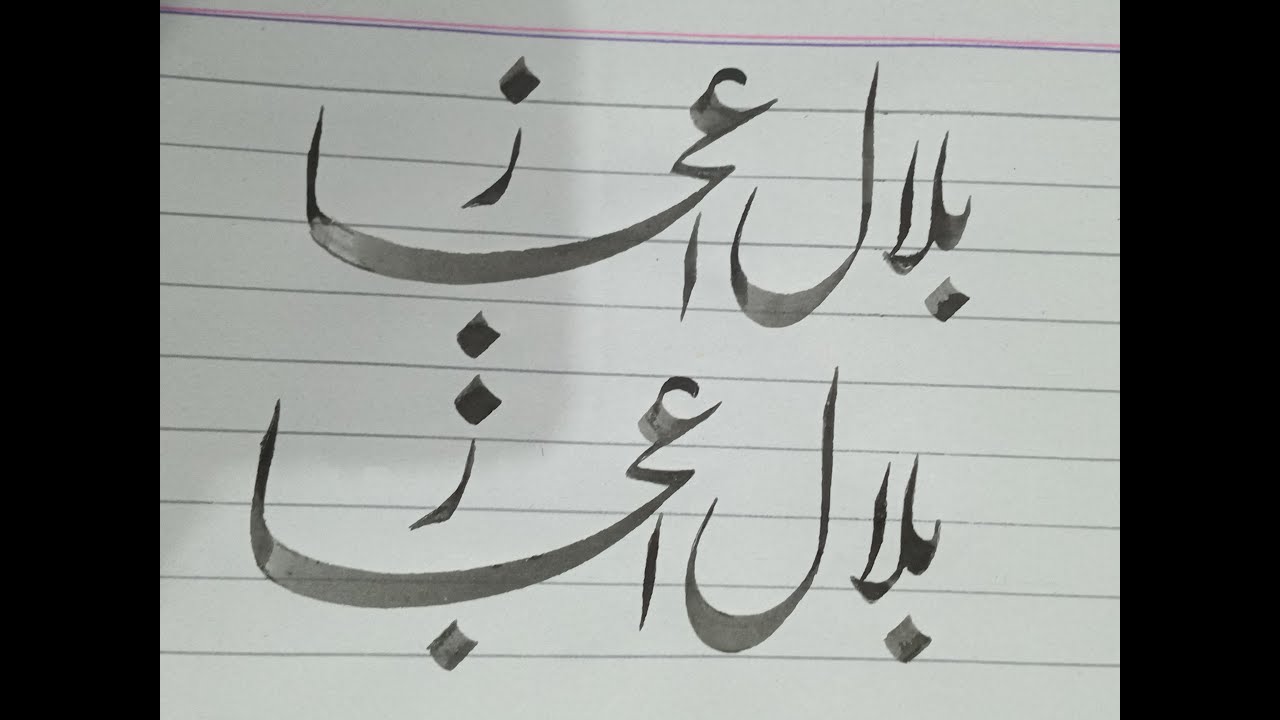 بلال اعجاز
بلال اعجاز